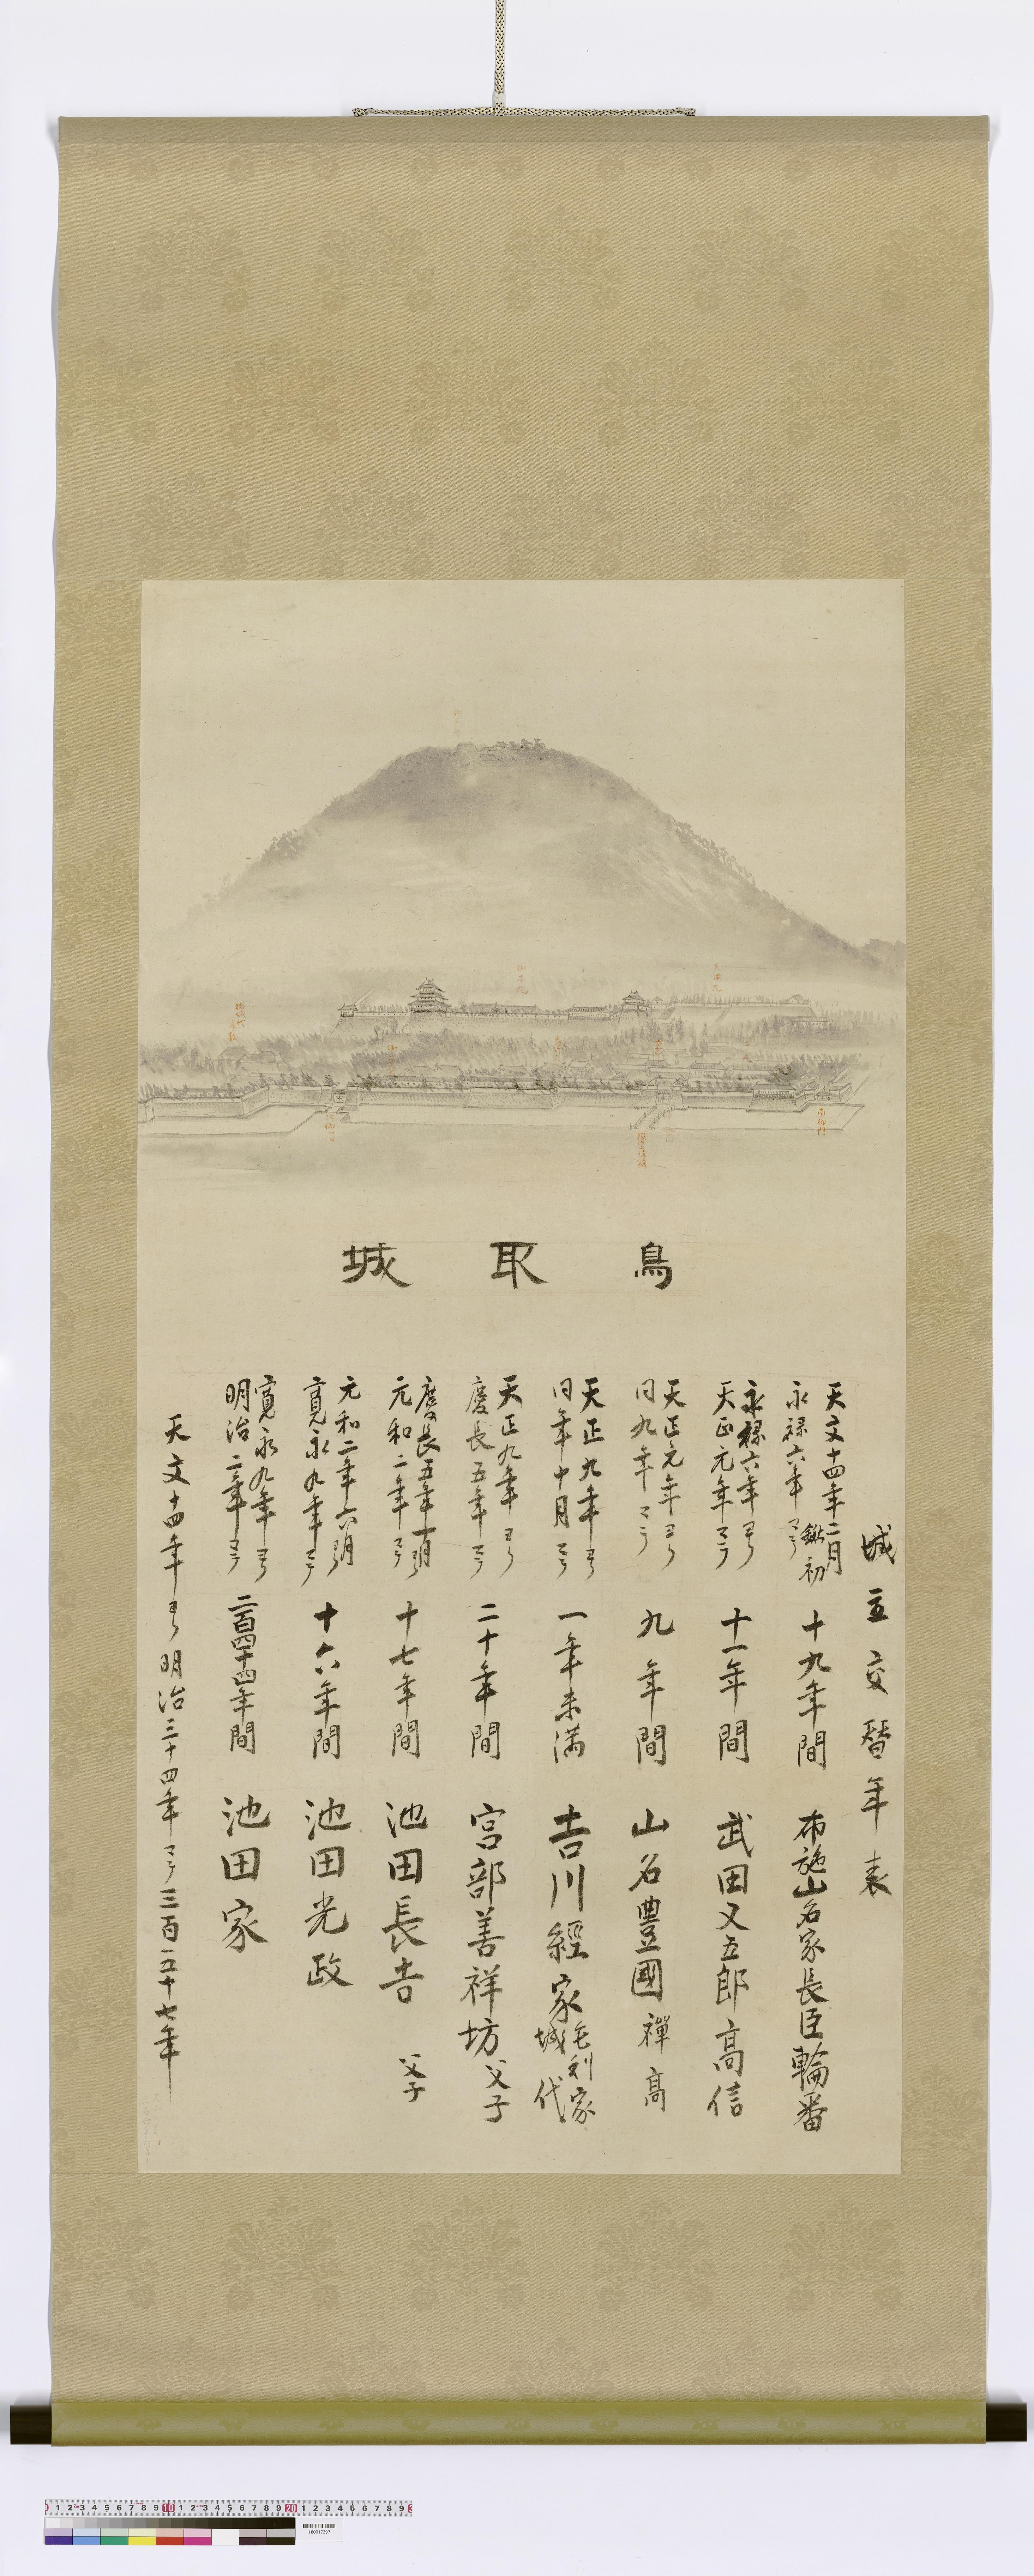 鳥取城
城主交替年表
天文十四年二月鍬初
永禄六年マテ
十九年間
布施山名家長臣輪番
永禄六年ヨリ
天正元年マテ
十一年間
武田又五郎高信
天正元年ヨリ
同九年マテ
九年間
山名豊國禅高
天正九年ヨリ
同年十月マテ
一年未満
吉川經家毛利家城代
天正九年ヨリ
慶長五年マテ
二十年間
宮部善祥坊父子
慶長五年十一月ヨリ
元和二年マテ
十七年間
池田長吉父子
元和二年六月ヨリ
寛永九年マテ
十六年間
池田光政
寛永九年ヨリ
明治二年マテ
二百四十四年間
池田家
天文十四年ヨリ明治三十四年マテ三百五十七年
南御門